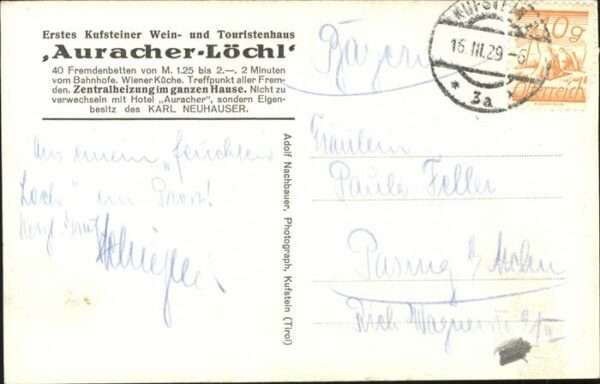 Erstes Kufsteiner Wein- und Touristenhaus
‚Auracher-Löchl‘
40 Fremdenbetten von M. 1.25 bis 2.—. 2 Minuten
vom Bahnhofe. Wiener Küche. Treffpunkt aller Frem-
den. Zentralheizung im ganzen Hause. Nicht zu
verwechseln mit Hotel „Auracher", sondern Eigen-
besitz des KARL NEUHAUSER.
Aus einem „feuchten
Loch" ein Prost!
Adolf Nachbauer, Photograph, Kufstein (Tirol)
Bayern
KUFSTEIN
16.III.29-6
* 3a *
Österreich
Fräulein
Paula Feller
Pasing b/
Rich Wagner